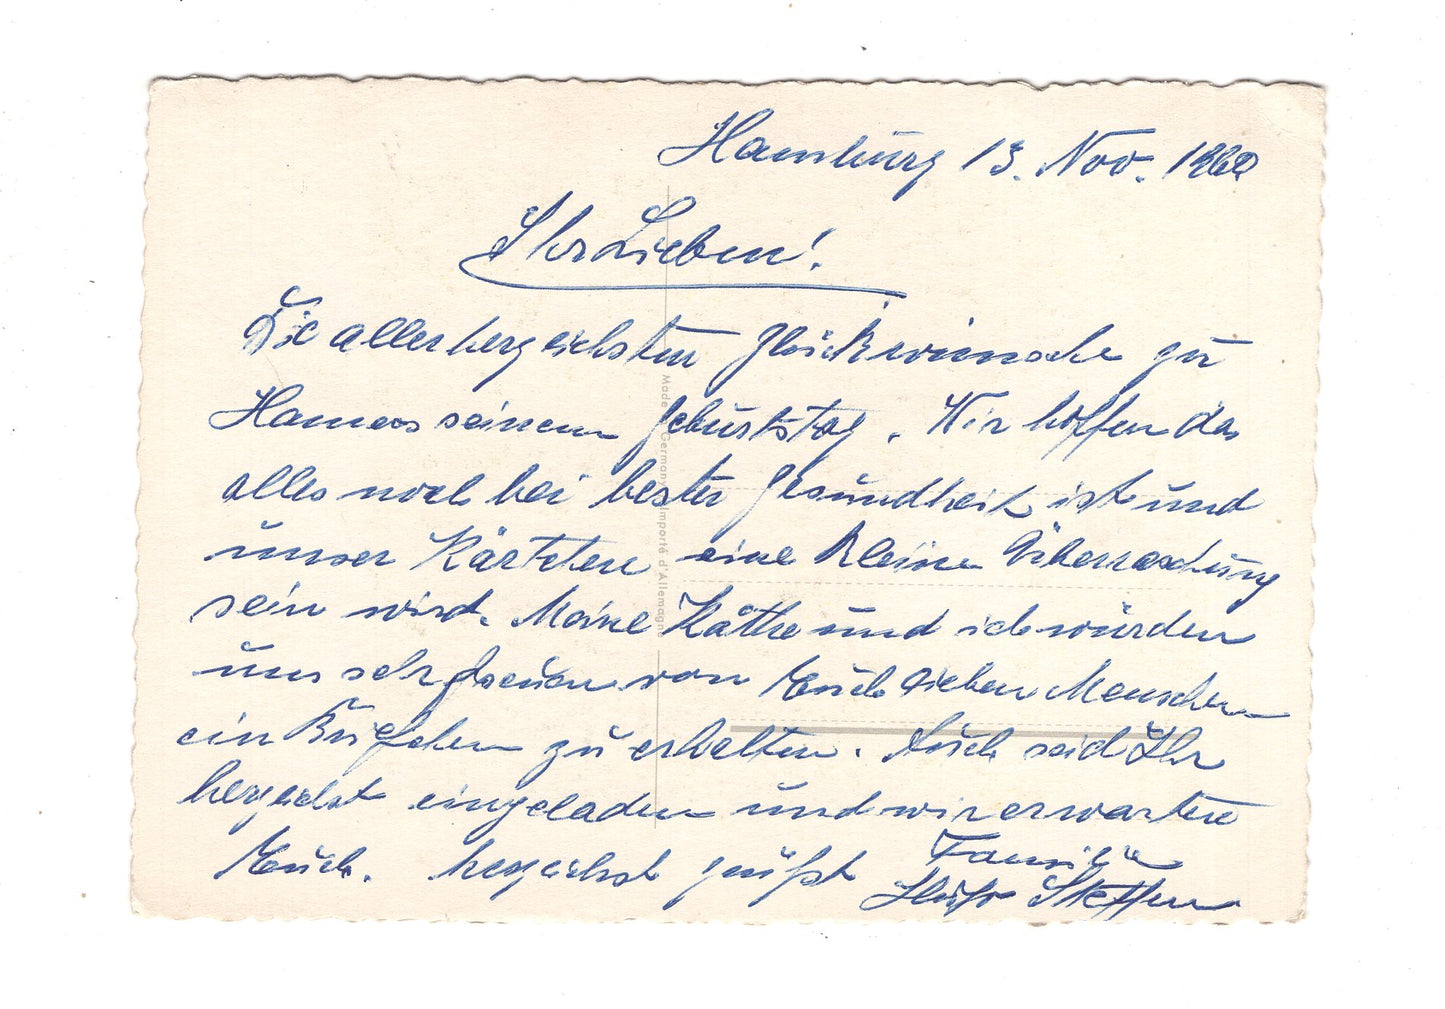 Hamburg 13. Nov. 1960
Ihr Lieben!
Die allerherzlichsten Glückwünsche zu
seinem Geburtstag. Wir hoffen das
alles noch bei bester Gesundheit ist und
unser Kärtchen eine kleine Überraschung
sein wird. Meine Käthe und ich würden
uns sehr freuen von Euch lieben Menschen
ein Briefchen zu erhalten. Auch seid Ihr
herzlichst eingeladen und wir erwarten
Euch. herzlichst grüßt Familie
Steffen
Made Germany Importé d'Allemagne